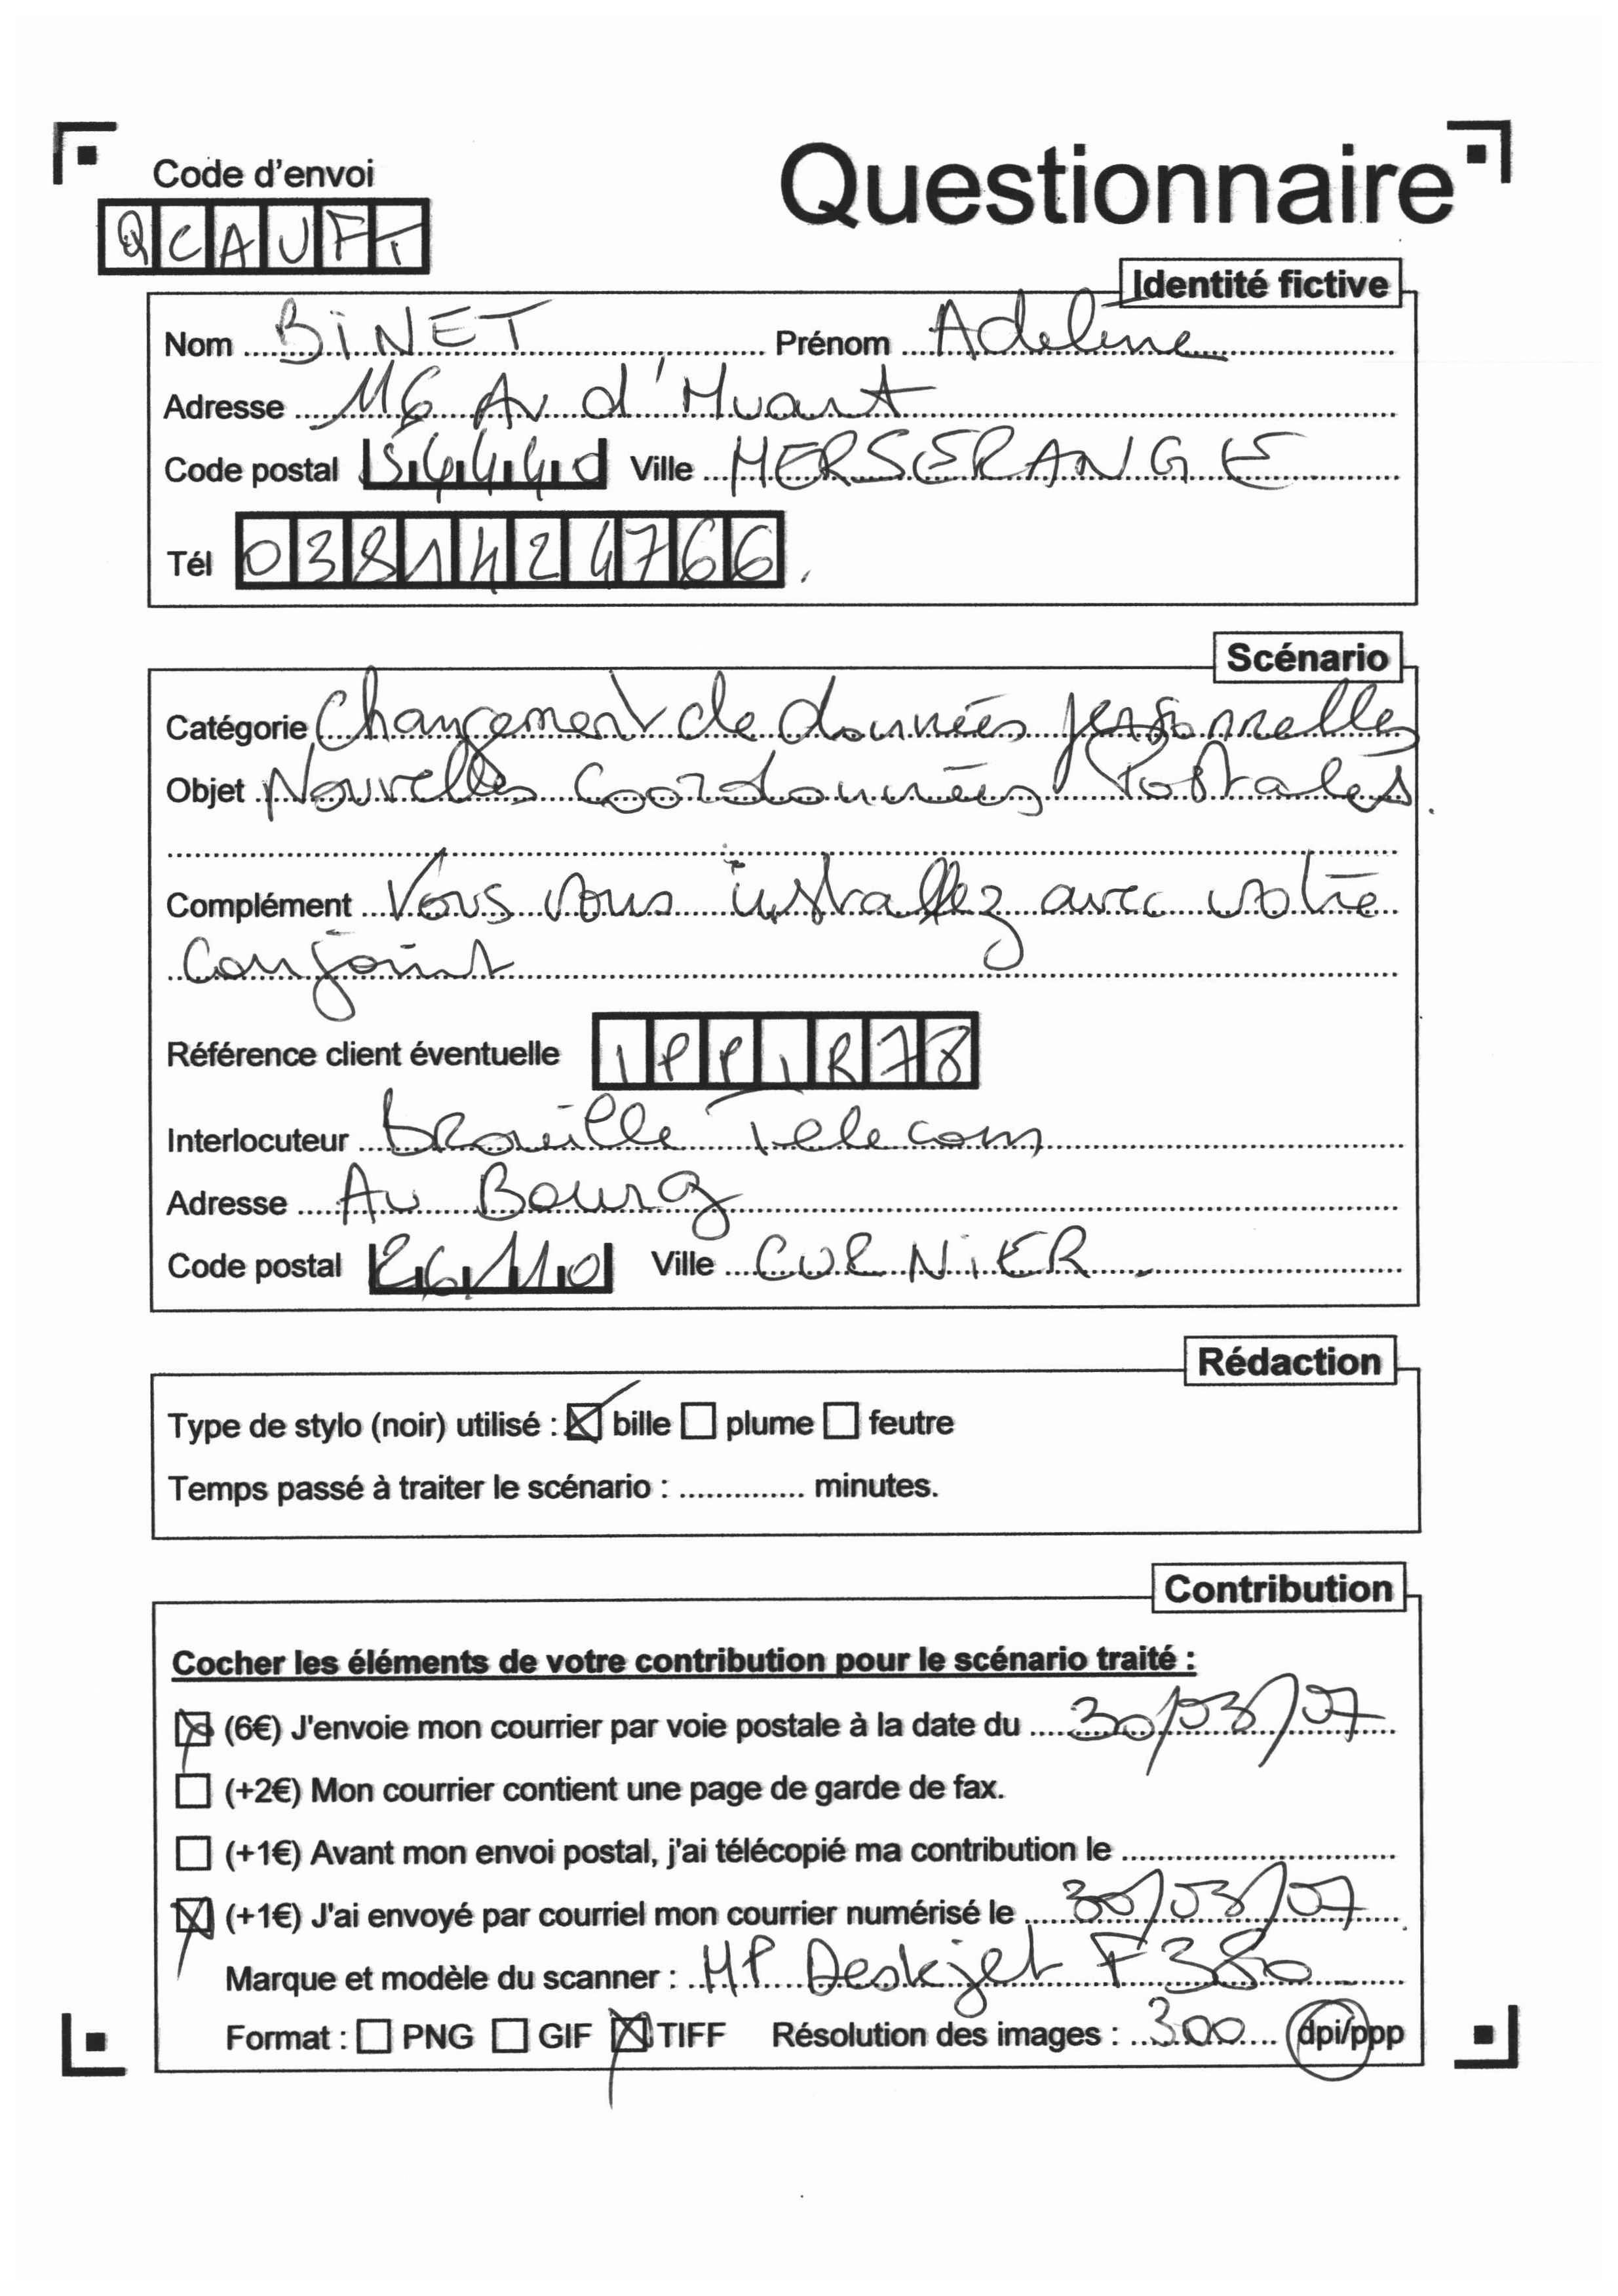 Code d'envoi
Questionnaire
QCAUFT
Identité fictive
Nom BINET Prénom Adeline
Adresse 116 Av d'Huart
Code postal 54440 Ville HERSERANGE
Tél 0381424766
Scénario
Catégorie Changement de données personnelles
Objet Nouvelles Coordonnées Postales.
Complément Vous vous installez avec votre
Conjoint
Référence client éventuelle IPPIR78
Interlocuteur Braille Telecom
Adresse Au Bourg
Code postal 26110 Ville CURNIER.
Rédaction
Type de stylo (noir) utilisé : bille plume feutre
Temps passé à traiter le scénario : .............. minutes.
Contribution
Cocher les éléments de votre contribution pour le scénario traité :
(6€) J'envoie mon courrier par voie postale à la date du 30/03/07
(+2€) Mon courrier contient une page de garde de fax.
(+1€) Avant mon envoi postal, j'ai télécopié ma contribution le
(+1€) J'ai envoyé par courriel mon courrier numérisé le 30/03/07
Marque et modèle du scanner : HP Deskjet F380
Format : PNG GIF TIFF Résolution des images : 300 dpi/ppp